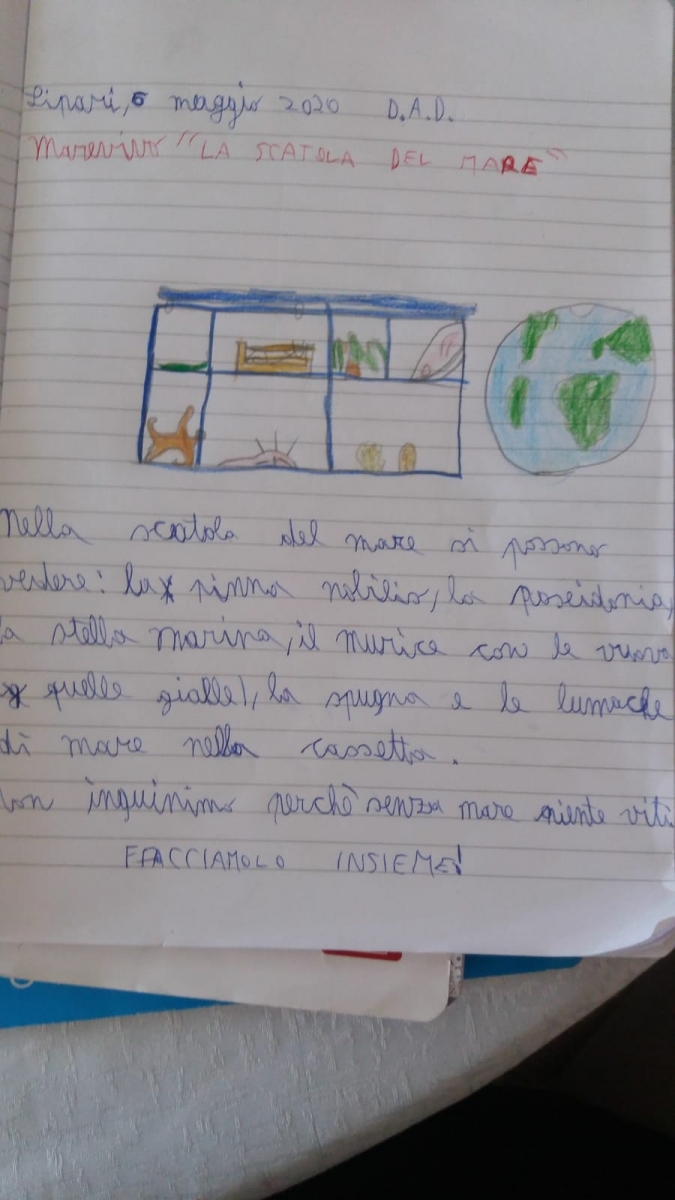 Lipari, 6 maggio 2020 D.A.D.
Marevivo "LA SCATOLA DEL MARE"
Nella scatola del mare si possono
vedere: la pinna nobilis, la poseidonia,
la stella marina, il murice con le vuova
quelle gialle), la spugna e le lumache
di mare nella cassetta.
Non inquinimo perchè senza mare niente vit
FFACCIAMOLO INSIEME!